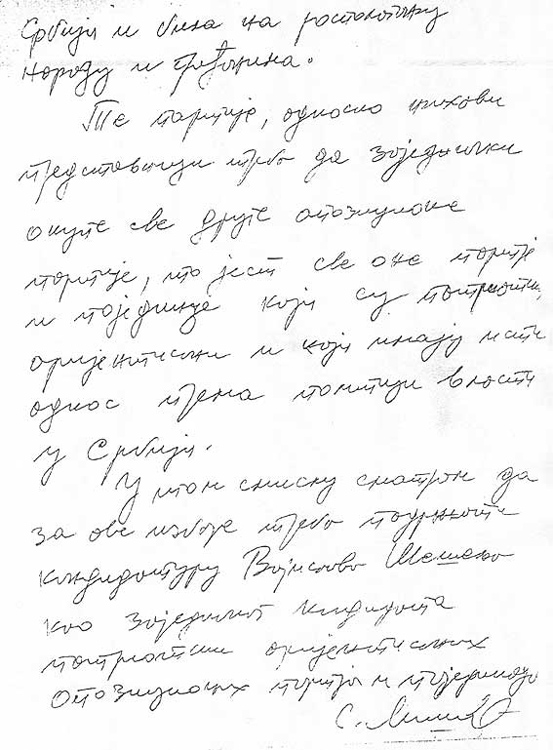 Србији и била на располагању
народу и грађанима.
Те партије, односно њихови
представници треба да заједнички
окупе све друге опозиционе
партије, то јест све оне партије
и појединце који су патриотски
оријентисани и који имају исти
однос према политици власти
у Србији.
У том смислу сматрам да
за ове изборе треба подржати
кандидатуру Војислава Шешеља
као заједничког кандидата
патриотски оријентисаних
опозиционих партија и појединаца
С.